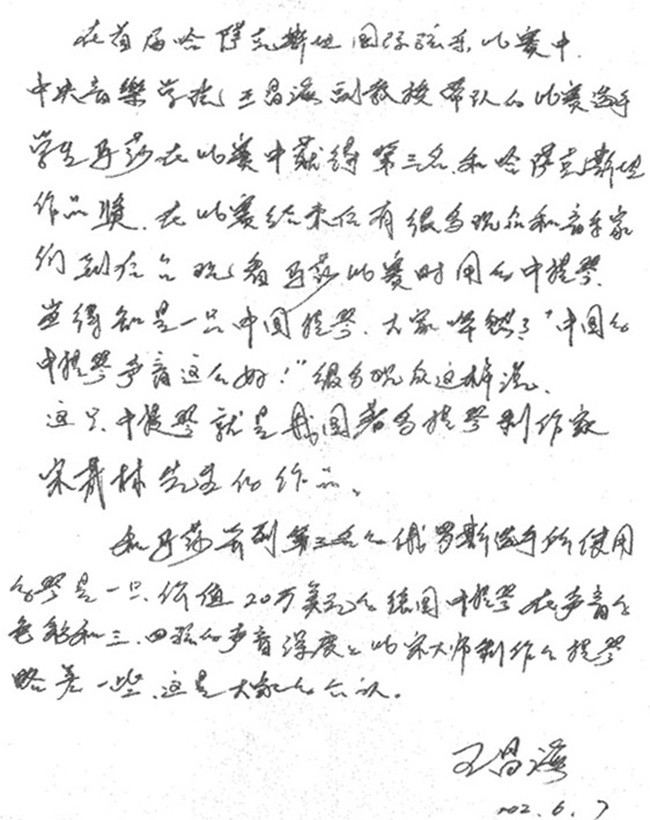 在首届哈萨克斯坦国际弦乐比赛中.
中央音樂学院王昌海副教授带队的比赛选手
学生马莎在比赛中获得第三名.和哈萨克斯坦
作品獎.在比赛结束后有很多观众和音乐家
们到后台观看马莎比赛时用的中提琴.
当得知是一只中国提琴.大家哗然了"中国的
中提琴声音这么好!"很多观众这样说.
这只中提琴就是我国著名提琴制作家
宋 林先生的作品.
和马莎并列第三名的俄罗斯选手所使用
的琴是一只价值20万美元的德国中提琴在声音的
色彩和三.四弦的声音深度上比宋大师制作的提琴
略差一些.这是大家的公认.
王昌海
2002.6.7